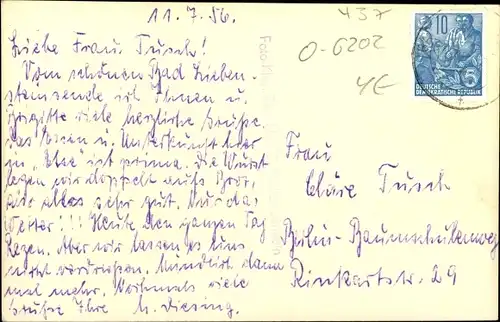 11.7.56.
437
O-6202
Liebe Frau Tusch!
Vom schönen Bad Lieben-
stein sende ich Ihnen u.
Brigitte viele herzliche Grüße.
Das Essen u. Unterkunft hier
im ist prima. Die Wurst
legen wir doppelt aufs Brot,
also alles sehr gut. Nur das
Wetter!!! Heute den ganzen Tag
Regen. Aber wir lassen es uns
nicht verdrießen. dann
mal mehr. Nochmals viele
Grüße Ihre M. Diesing.
10
5
DEUTSCHE
DEMOKRATISCHE REPUBLIK
Frau
Cläre Tusch
Berlin-Baumschulenweg
Rinkartstr. 29